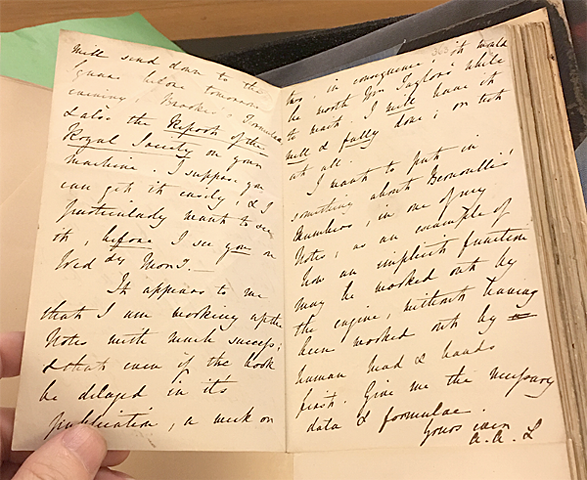 will send down to the
Square before tomorrow
evening, Brooke's Formulae
& also the Report of the
Royal Society on your
machine. I suppose you
can get it easily, & I
particularly want to see
it, before I see you on
Wed dy Morng.—
It appears to me
that I am working up the
Notes with much success;
& that even if the book
be delayed in it's
publication, a week or
two, in consequence, it would
be worth Mr Taylor's while
to wait. I will have it
well & fully done; or not
at all.
I want to put in
something about Bernoulli's
Numbers, in one of my
Notes, as an example of
how an implicit function
may be worked out by
the engine, without having
been worked out by
human head & hands
first. Give me the necessary
data & formulae.
Yours ever
A.A.L